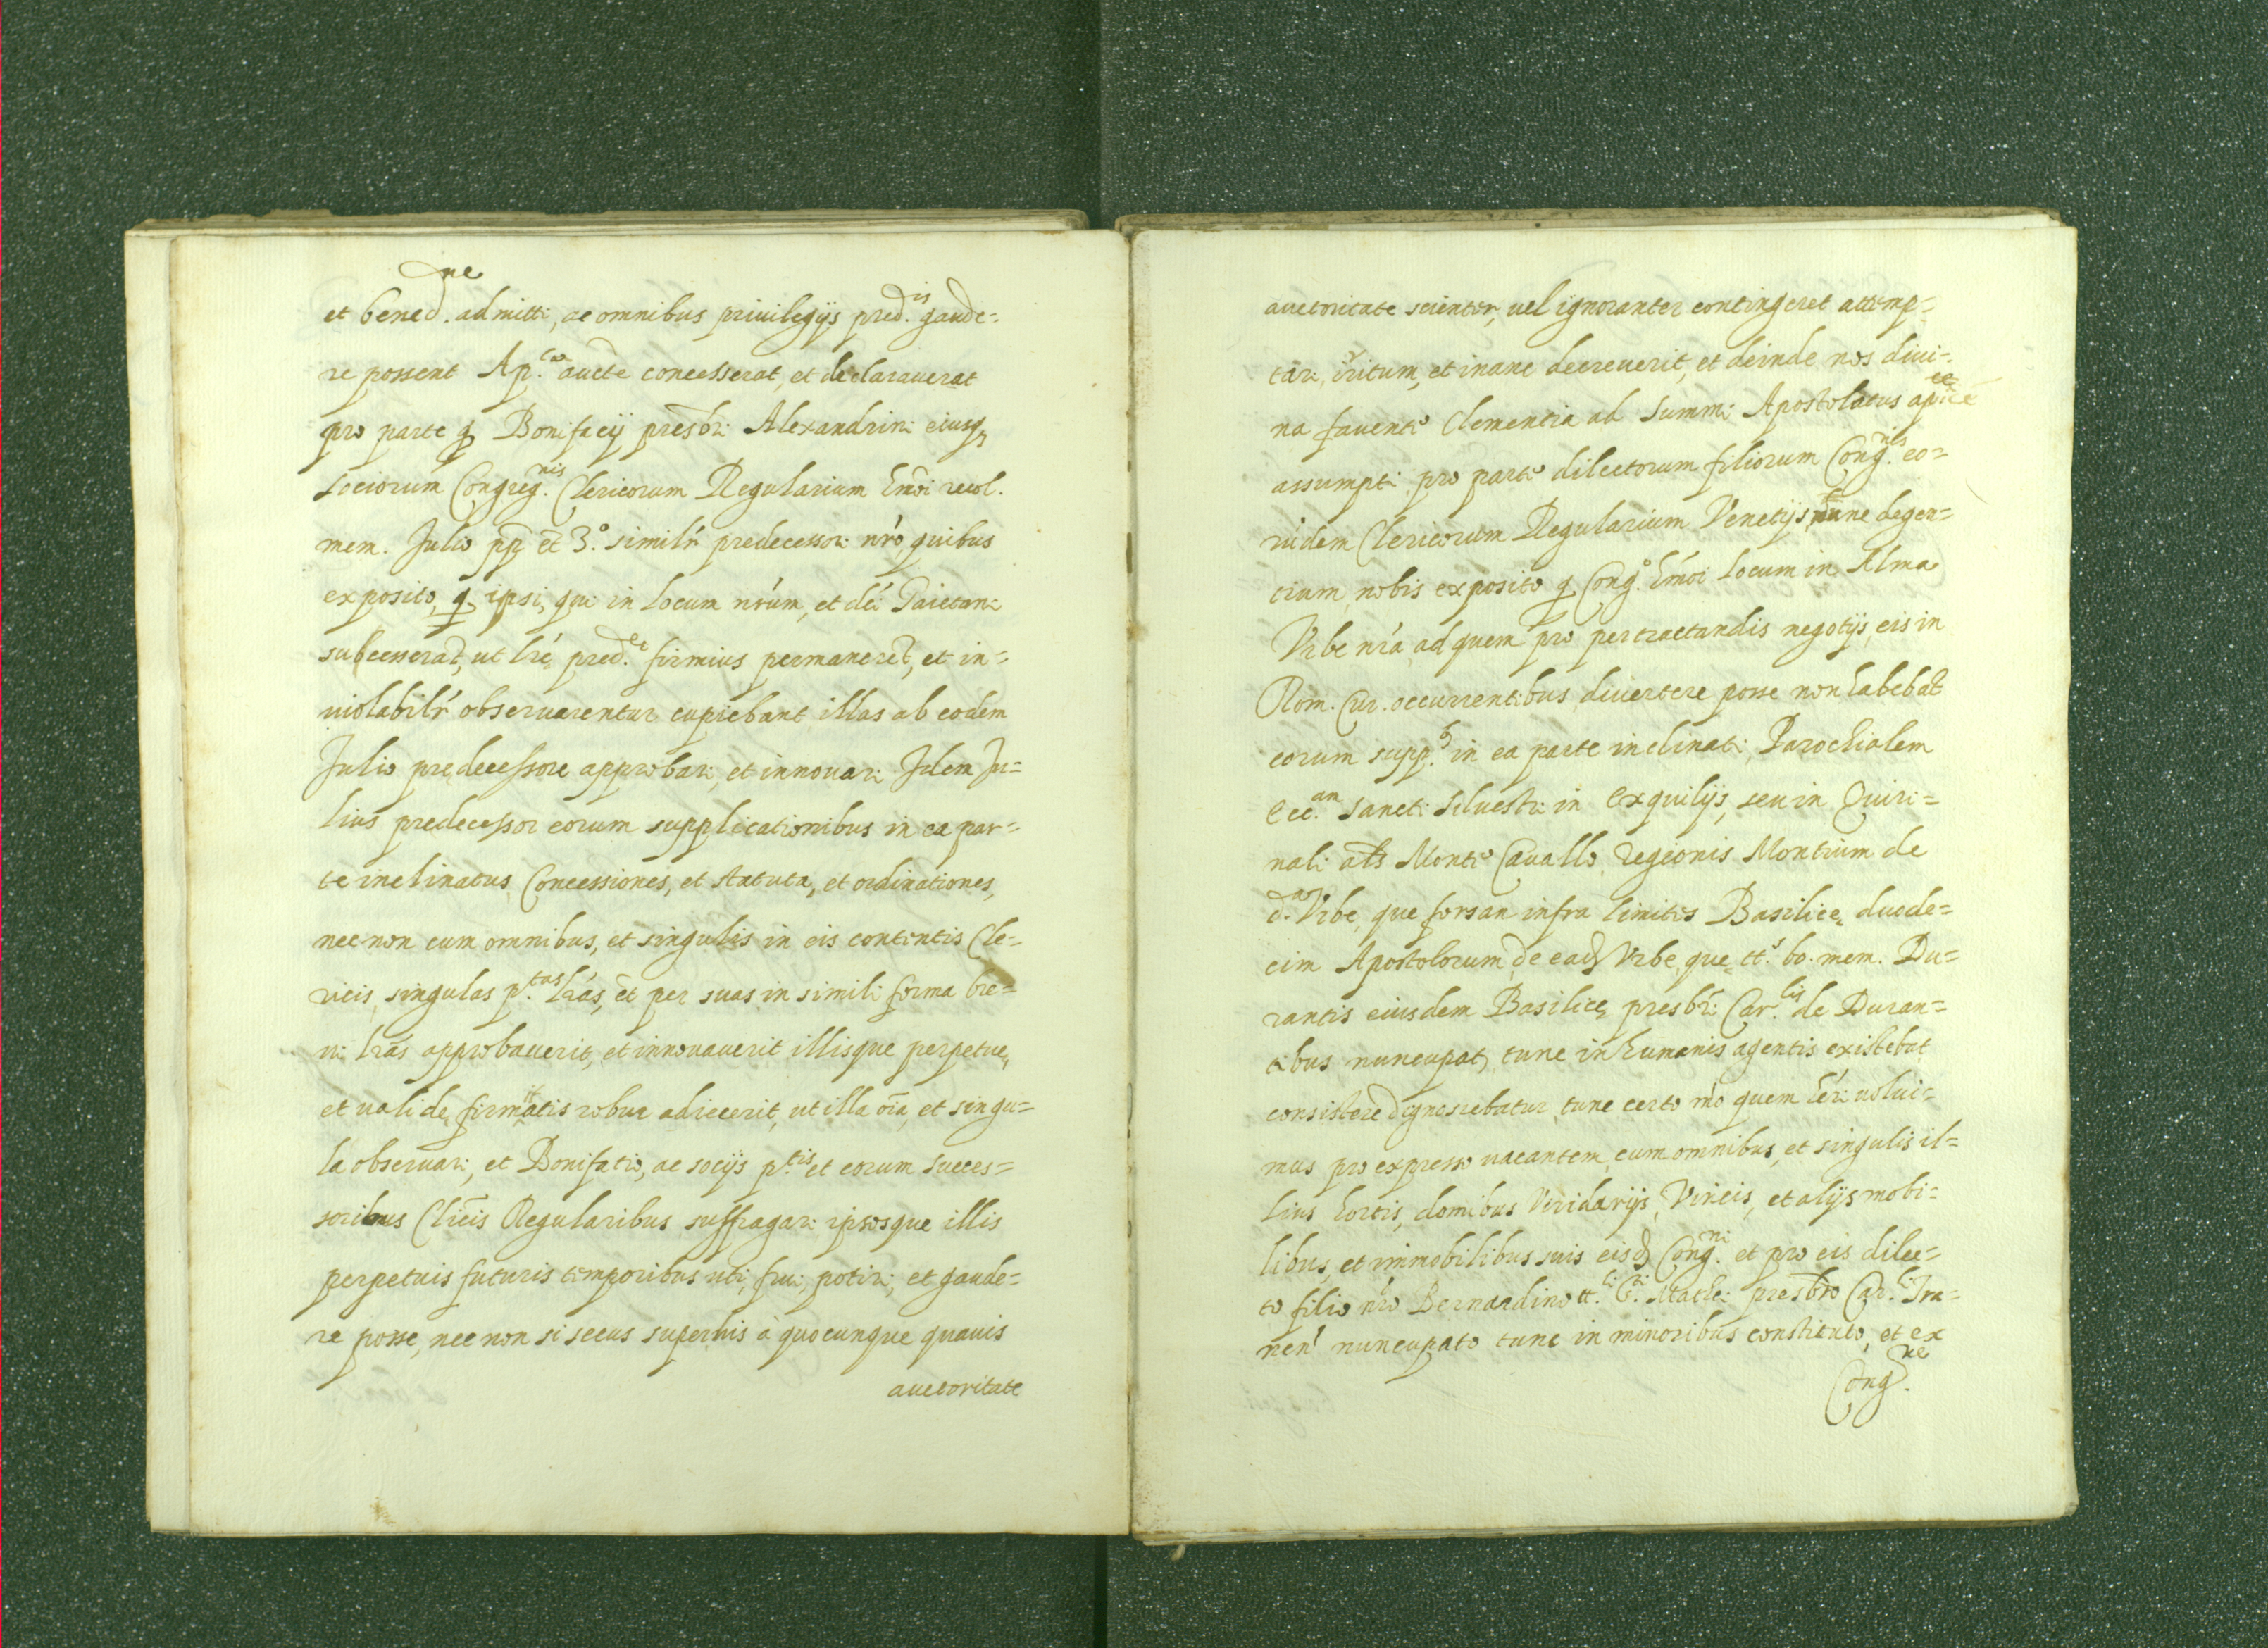 et bened.ne admitti, ac omnibus priuilegijs pred.is gaude=
re possent Ap.ca aucte concesserat, et declarauerat
pro parte q Bonifacij presbri Alexandrini eiusq
sociorum Congreg.nis Clericorum Regularium hmoi recol.
mem. Julio pp et 3.o similr predecessori nro, quibus
exposito, q ipsi, qui in locum nrum, et dci Gaietani
subcesserat, ut lre pred.te firmius permaneret, et in=
uiolabilr obseruarentur cupiebant illas ab eodem
Julio predecessore approbari, et innouari Idem Ju=
lius predecessor eorum supplicationibus in ea par=
te inclinatus Concessiones, et statuta, et ordinationes,
nec non cum omnibus, et singulis in eis contentis Cle=
ricis singulas p.tas lras, et per suas in simili forma bre=
ui lras approbauerit, et innouauerit illisque perpetue,
et ualide firmitatis robur adiecerit, ut illa oia, et singu=
la obseruari, et Bonifatio, ac socijs p.tis et eorum succes=
soribus Clicis Regularibus suffragari ipsosque illis
perpetuis futuris temporibus uti, frui, potiri, et gaude=
re posse, nec non si secus super his à quocunque quauis
auctoritate
auctoritate scienter, uel ignoranter contingeret attemp=
tari, irritum, et inane decreuerit, et deinde nos diui=
na fauente Clementia ad Summi Apostolatus apice
assumpti pro parte dilectorum filiorum Cong.nis eo=
rudem Clericorum Regularium Venetijs tunc degen=
tium nobis exposito q Cong.o hmoi locum in Alma
Vrbe nra ad quem pro pertractandis negotijs eis in
Rom. Cur. occurrentibus diuertere posse non habebat
eorum supp.b in ea parte inclinati Parochialem
Ecc.am Sancti Siluestri in Exquilijs, seu in Quiri=
nali als Monte Cauallo regionis Montium de
d.a Vrbe, que forsan infra limites Basilice duode=
cim Apostolorum de ead Vrbe, que tt.s bo. mem. Du=
rantis eiusdem Basilice presbri Car.lis de Duran=
tibus nuncupat, tunc in humanis agentis existebat
consistere dignoscebatur tunc certo mo quem heri uolui=
mus pro expresso uacantem, cum omnibus, et singulis il=
lius hortis, domibus Viridarijs, Vineis, et alijs mobi=
libus, et immobilibus suis eisd Cong.ni et pro eis dilec=
to filio nro Bernardino tt.li S.ti Mathei presbro Car.li Tra=
nen nuncupato tunc in minoribus constituto, et ex
Cong.ne